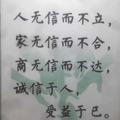 人无信而不立，
家无信而不合，
商无信而不达，
诚信于人，
受益于己。